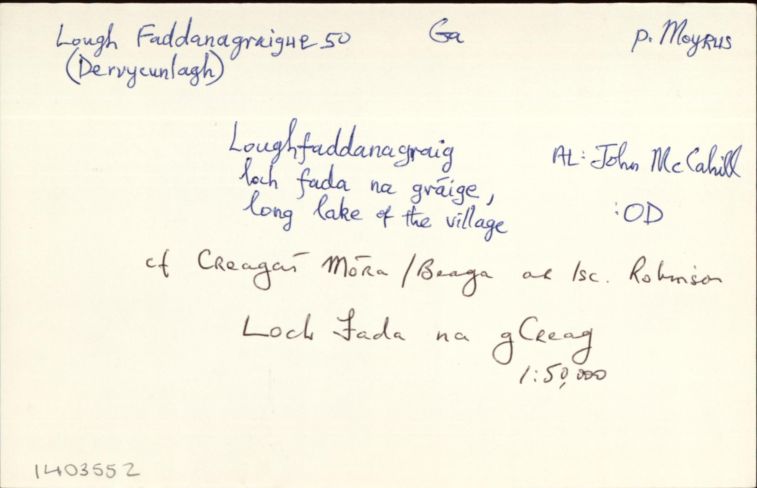 Lough Faddanagraigue 50 Ga p. Moyrus
(Derrycunlagh)
Loughfaddanagraig AL: John McCahill
loch fada na gráige, :OD
long lake of the village
cf Creagaí Móra / Beaga ar lsc. Robinson
Loch Fada na gCreag
1:50,000
1403552